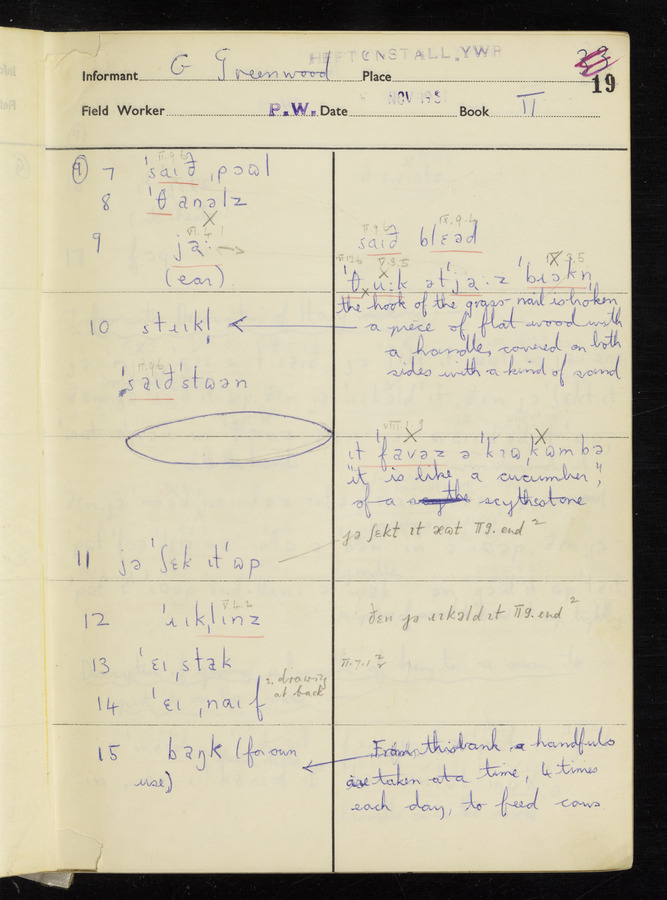 HEPTONSTALL, YWR
Informant G Greenwood Place
19
Field Worker P.W. Date NOV 195 Book II
(9) 7 ˈsaɪð ˌpɔəl
8 ˈθanəlz
9 ja:
(ear)
saɪð blɛəd
the hook of the grass-nail is broken
10 stɹɪkl̩
a piece of flat wood with
a handle, covered on both
sides with a kind of sand
ˈsaɪðˈstwən
ɪt ˈfavəz ə
"it is like a cucumber",
of a scythestone
jə ʃɛkt ɪt II 9. end 2
11 jə ˈʃɛk ɪtˈʊp
12 ˈɹɪkˌlɪnz
ðɛn jə ɹɪkəld ɪt II 9. end 2
13 ˈɛɪˌstak
II.7.1
14 ˈɛɪˌnaɪf
drawing
at back
15 baŋk (for own
use)
From this bank handfuls
are taken at a time, 4 times
each day, to feed cows